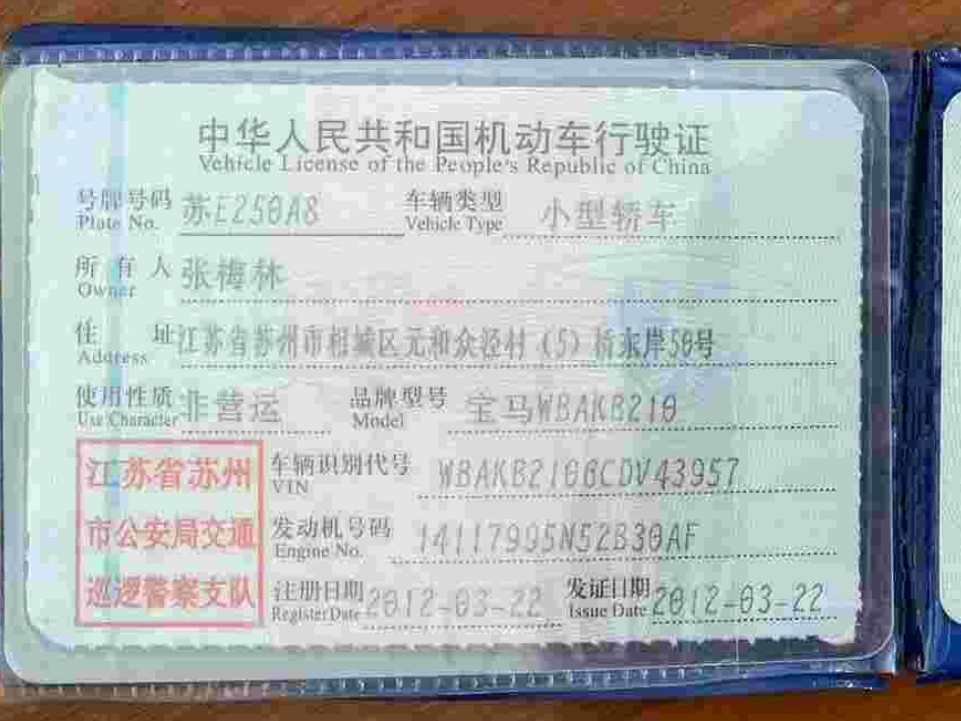 中华人民共和国机动车行驶证
Vehicle License of the People's Republic of China
号牌号码 苏E250A8 车辆类型 小型轿车
Plate No. Vehicle Type
所有人 张梅林
Owner
住址 江苏省苏州市相城区元和众泾村(5)桥东岸50号
Address
使用性质 非营运 品牌型号 宝马WBAKB210
Use Character Model
江苏省苏州
市公安局交通
巡逻警察支队
车辆识别代号 WBAKB2108CDV43957
VIN
发动机号码 14117995N52B30AF
Engine No.
注册日期 2012-03-22 发证日期 2012-03-22
Register Date Issue Date